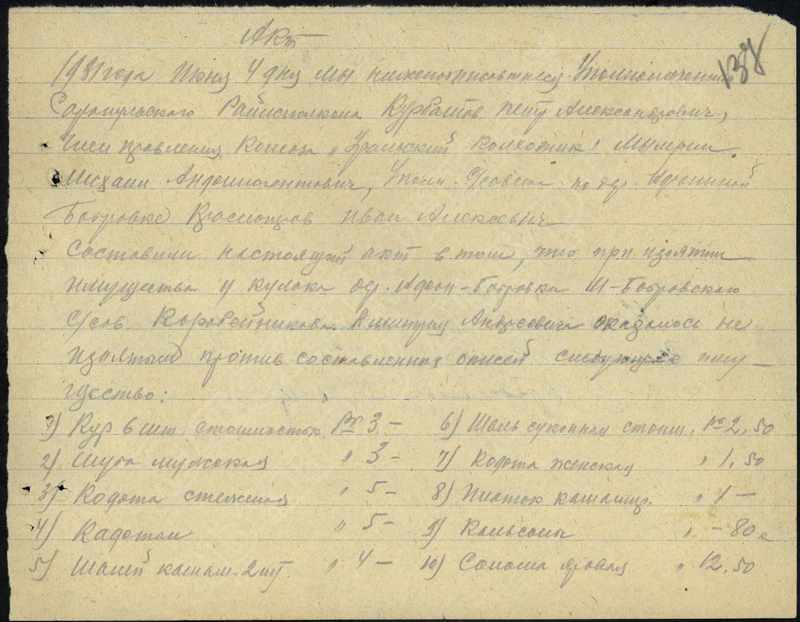 Акт
138
1931 года Июня 4 дня мы нижеподписавшиеся Уполномоченный
Сарапульского Райисполкома Курбатов Петр Александрович,
Член правления Колхоза „Уральский колхозник"
Михаил, Уполн. С/совета по др.
Бобровке Иван Алексеевич
Составили настоящий акт в том, что при изъятии
имущества у кулака др. Афон-Бобровка М-Бобровского
с/сов. Коробейникова Дмитрия Андреевича оказалось не
изъятым против составленных описей следующее иму-
щество:
1) Кур 6 шт. стоимостью Рб 3 -
2) Шуба мужская " 3 -
3) 5 -
4) " 5 -
5) Шалей кашам. 2 шт " 4 -
6) Шаль суконная стоим. Рб 2.50
7) женская " 1.50
8) Платок кашамир. " 1 -
9) Кальсоны " - 80 к
10) Солома яровая " 12.50